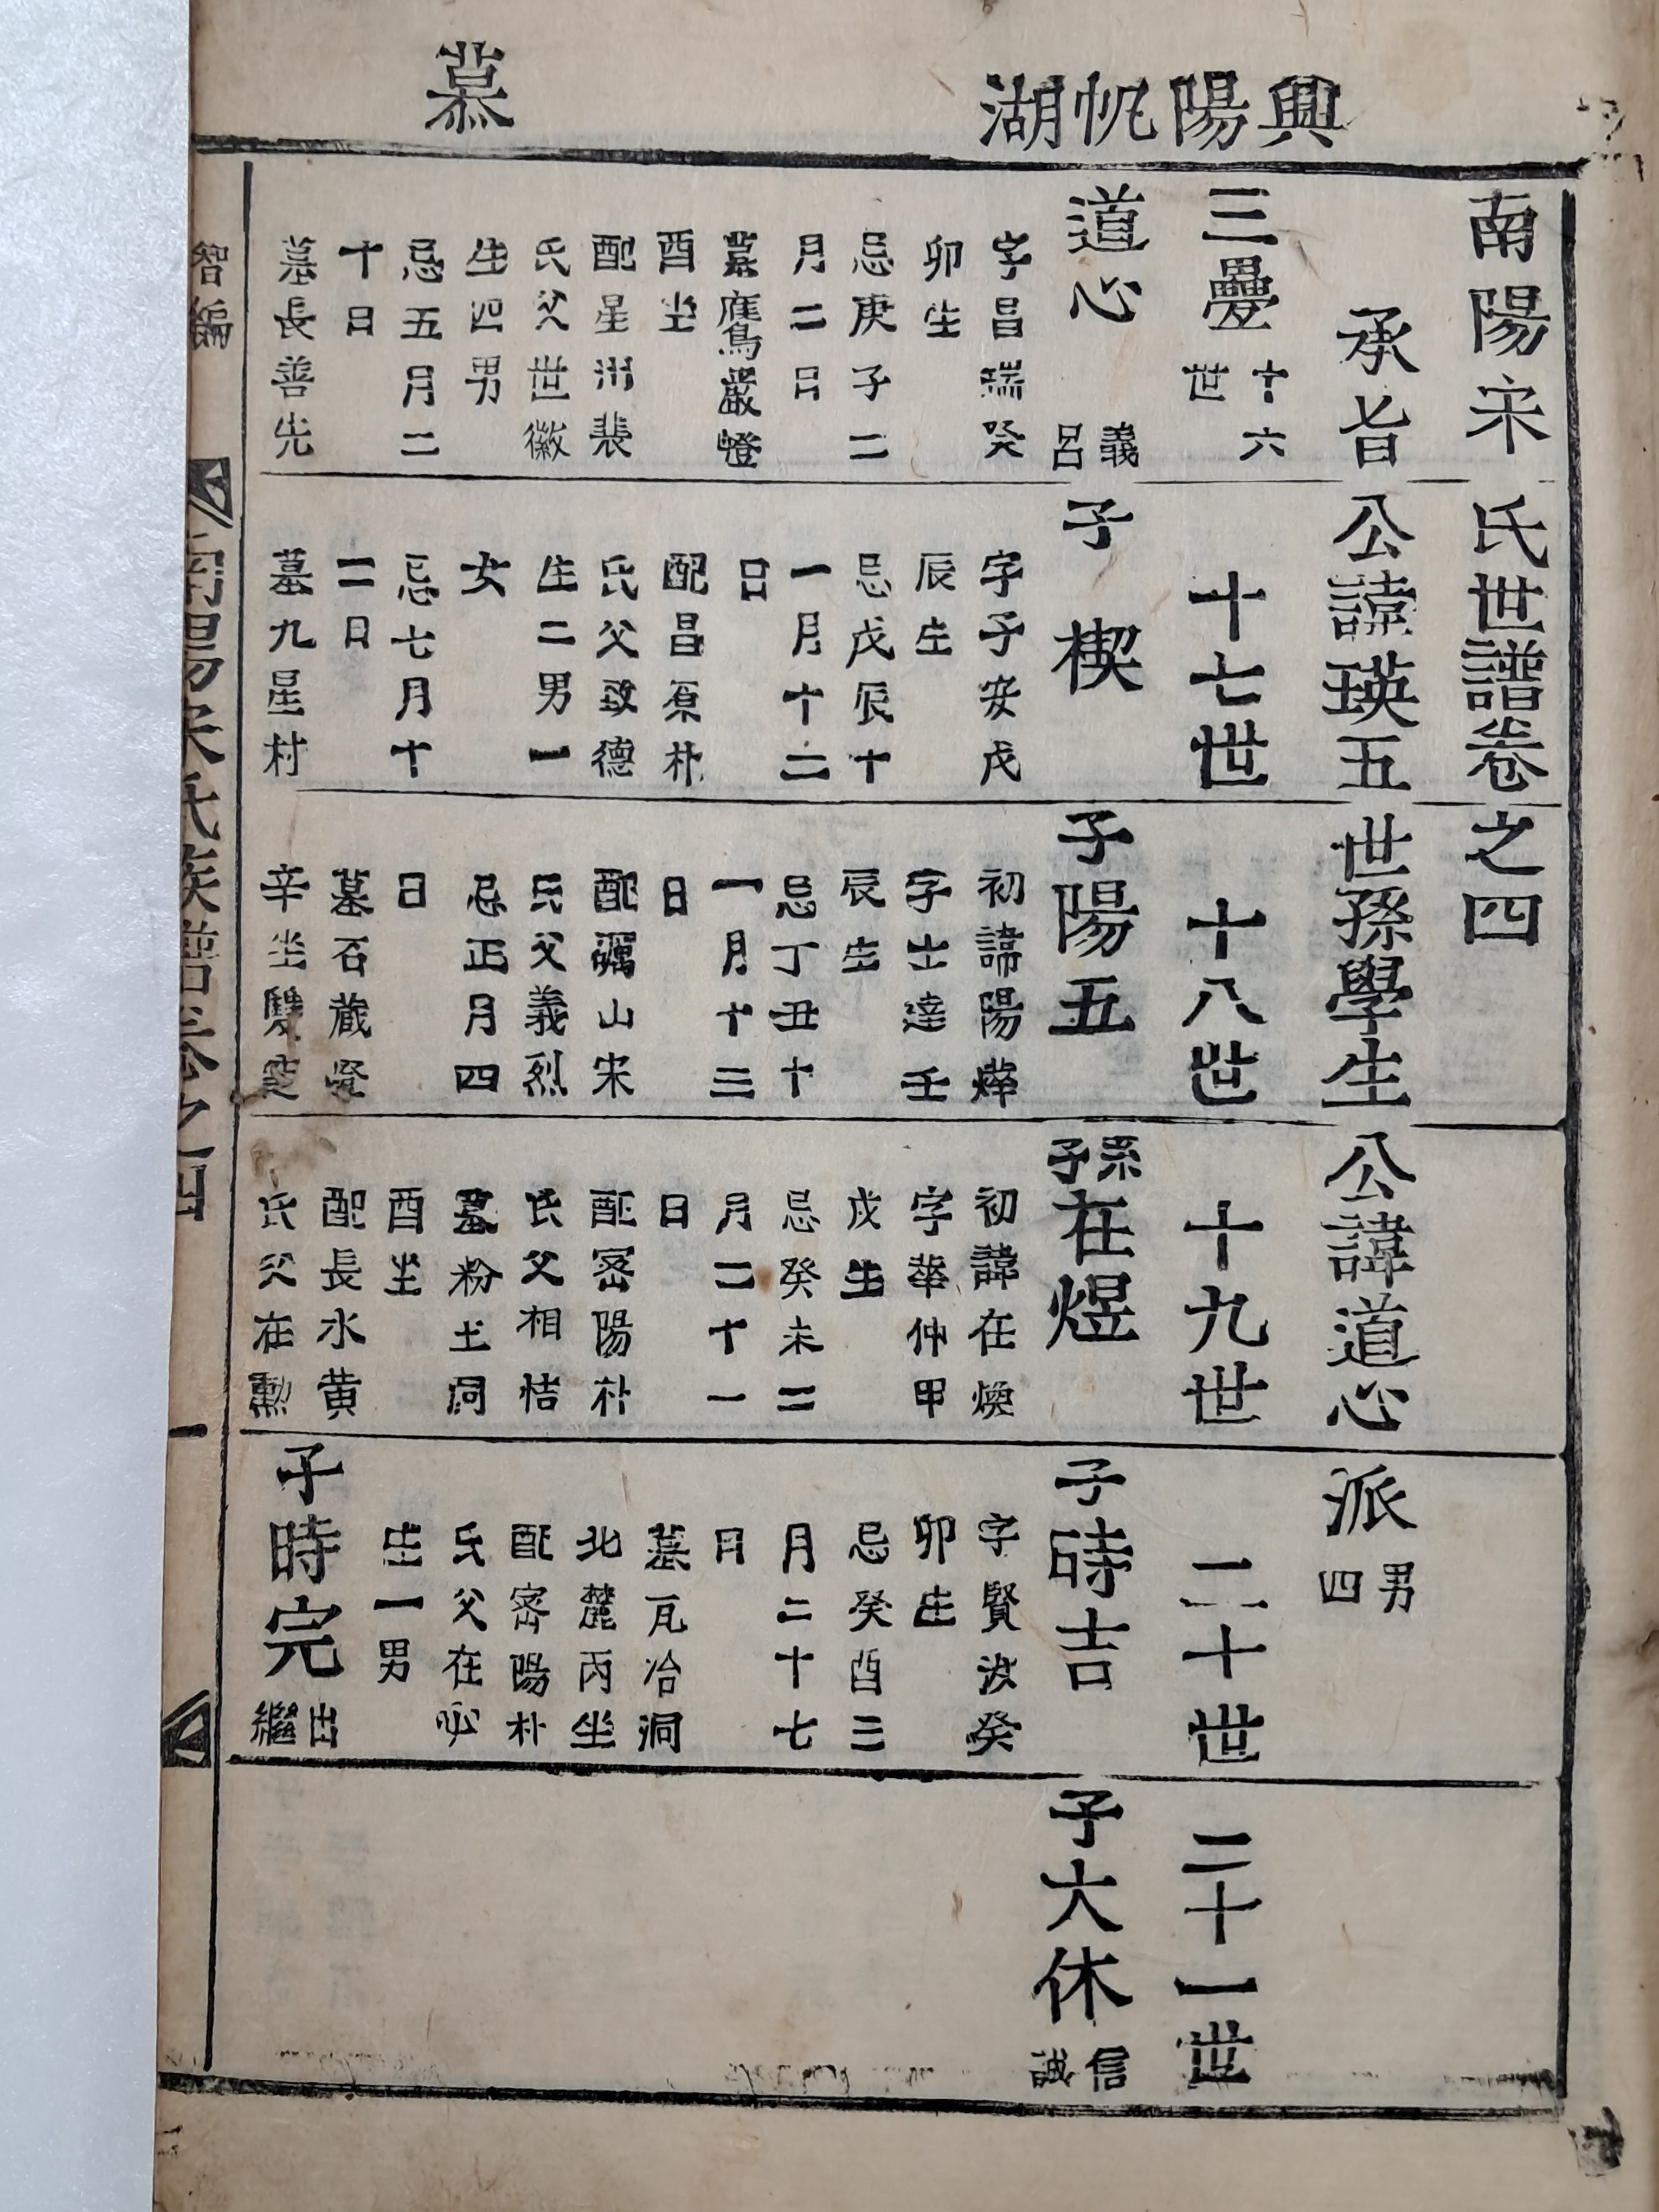 興陽帆湖
慕
南陽宋氏世譜卷之四
承旨公諱瑛五世孫學生公諱道心派
男四
三疊
十六世
道心
義呂
字昌瑞癸
卯生
忌庚子二
月二日
墓鷹巖嶝
酉坐
配星州裴
氏父世徽
生四男
忌五月二
十日
墓長善先
十七世
子
楔
字子安戊
辰生
忌戊辰十
一月十二
日
配昌原朴
氏父致德
生二男一
女
忌七月十
二日
墓九星村
十八世
子陽五
初諱陽燁
字士達壬
辰生
忌丁丑十
一月十三
日
配礪山宋
氏父義烈
忌正月四
日
墓石藏嶝
辛坐雙窆
十九世
系子孫在煜
初諱在煥
字華仲甲
戌生
忌癸未二
月二十一
日
配密陽朴
氏父相恬
墓粉土洞
酉坐
配長水黃
氏父在勳
二十世
子時吉
字賢汝癸
卯生
忌癸酉二
月二十七
日
墓瓦冶洞
北麓丙坐
配密陽朴
氏父在必
生一男
子時完
出繼
二十一世
子大休
信誠
智編
南陽宋氏族譜卷之四
一